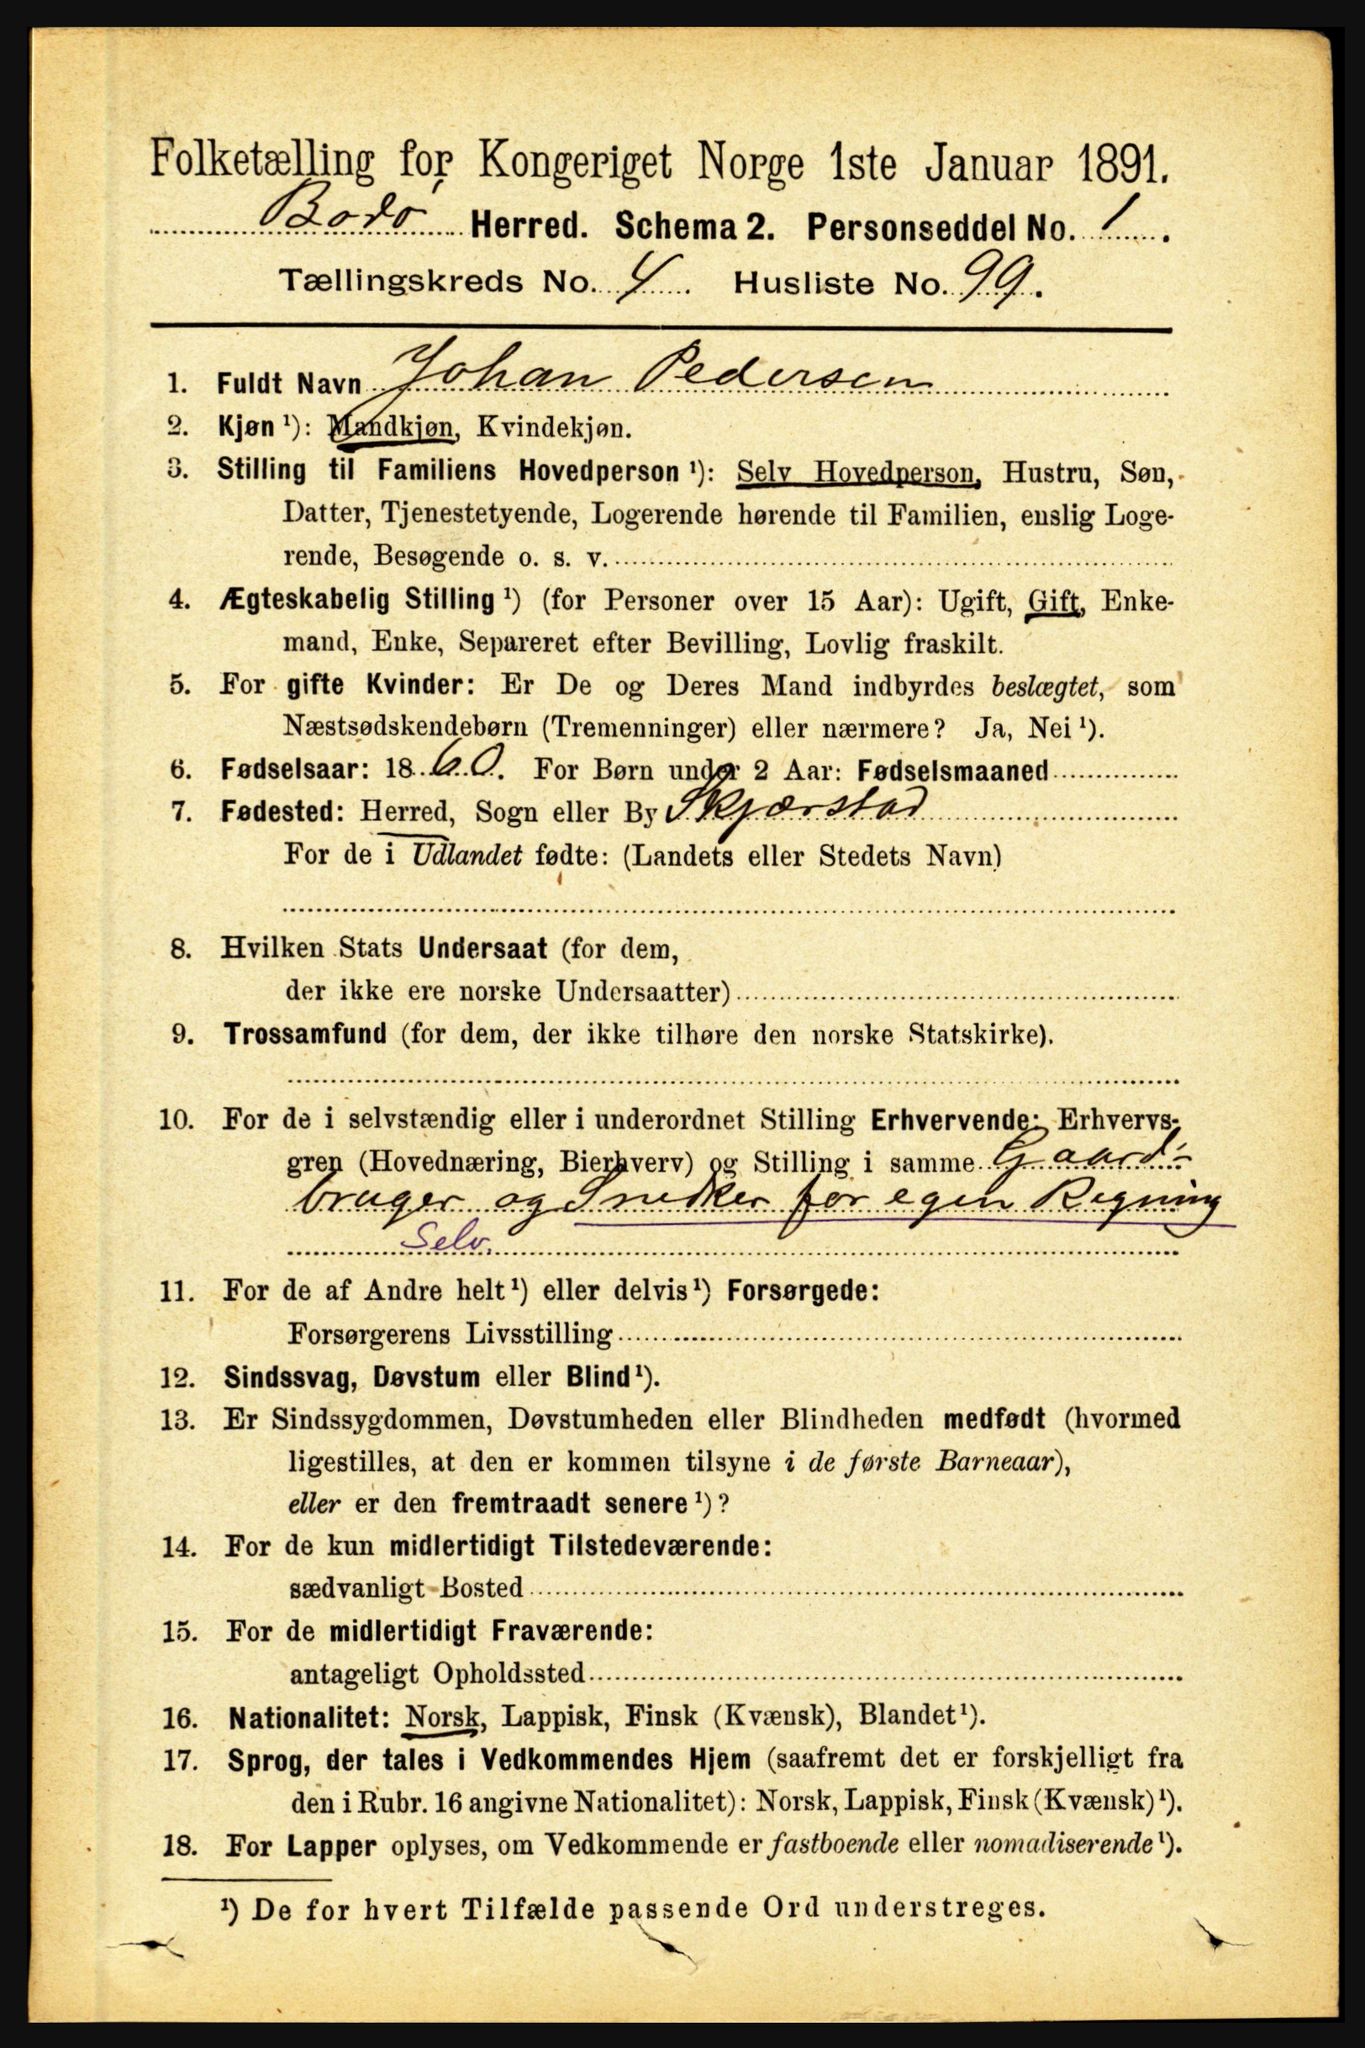 Folketælling for Kongeriget Norge 1ste Januar 1891.
Bodø Herred. Schema 2. Personseddel No. 1.
Tællingskreds No. 4. Husliste No. 99.
1. Fuldt Navn Johan Pedersen
2. Kjøn ¹): Mandkjøn, Kvindekjøn.
3. Stilling til Familiens Hovedperson ¹): Selv Hovedperson, Hustru, Søn,
Datter, Tjenestetyende, Logerende hørende til Familien, enslig Loge-
rende, Besøgende o. s. v.
4. Ægteskabelig Stilling ¹) (for Personer over 15 Aar): Ugift, Gift, Enke-
mand, Enke, Separeret efter Bevilling, Lovlig fraskilt.
5. For gifte Kvinder: Er De og Deres Mand indbyrdes beslægtet, som
Næstsødskendebørn (Tremenninger) eller nærmere? Ja, Nei ¹).
6. Fødselsaar: 1860. For Børn under 2 Aar: Fødselsmaaned
7. Fødested: Herred, Sogn eller By Skjærstad
For de i Udlandet fødte: (Landets eller Stedets Navn)
8. Hvilken Stats Undersaat (for dem,
der ikke ere norske Undersaatter)
9. Trossamfund (for dem, der ikke tilhøre den norske Statskirke).
10. For de i selvstændig eller i underordnet Stilling Erhvervende: Erhvervs-
gren (Hovednæring, Bierhverv) og Stilling i samme Gaard-
bruger og Snedker for egen Regning
Selv.
11. For de af Andre helt ¹) eller delvis ¹) Forsørgede:
Forsørgerens Livsstilling
12. Sindssvag, Døvstum eller Blind ¹).
13. Er Sindssygdommen, Døvstumheden eller Blindheden medfødt (hvormed
ligestilles, at den er kommen tilsyne i de første Barneaar),
eller er den fremtraadt senere ¹)?
14. For de kun midlertidigt Tilstedeværende:
sædvanligt Bosted
15. For de midlertidigt Fraværende:
antageligt Opholdssted
16. Nationalitet: Norsk, Lappisk, Finsk (Kvænsk), Blandet ¹).
17. Sprog, der tales i Vedkommendes Hjem (saafremt det er forskjelligt fra
den i Rubr. 16 angivne Nationalitet): Norsk, Lappisk, Finsk (Kvænsk) ¹).
18. For Lapper oplyses, om Vedkommende er fastboende eller nomadiserende ¹).
¹) De for hvert Tilfælde passende Ord understreges.